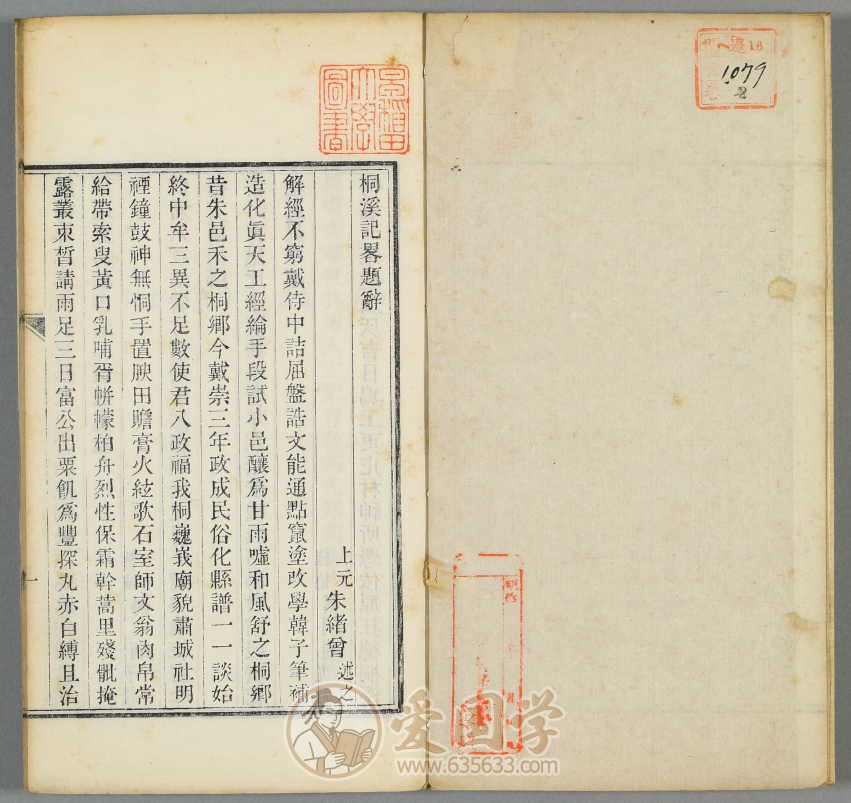 18
1079
2
早稲田大學圖書
桐溪記畧題辭
上元朱緒曾述之
解經不窮戴侍中詰屈盤誥文能通點竄塗改學韓子筆補
造化眞天工經綸手段試小邑釀爲甘雨噓和風舒之桐鄉
昔朱邑禾之桐鄉今戴崇三年政成民俗化縣譜一一談始
終中牟三異不足數使君八政福我桐巍峩廟貌肅城社明
禋鐘鼓神無恫手置腴田贍膏火絃歌石室師文翁肉帛常
給帶索叟黃口乳哺胥帡幪柏舟烈性保霜幹蒿里殘骴掩
露叢束晳請雨足三日富公出粟飢爲豐探丸赤白縛且治
一
爱国学
www.635633.com